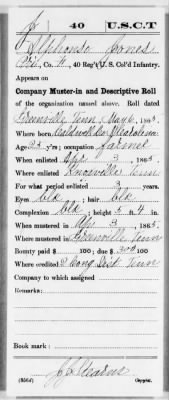 J 40 U.S.C.T
Alphonso Jones
Pvt, Co. H, 40 Reg't U. S. Col'd Infantry.
Appears on
Company Muster-in and Descriptive Roll
of the organization named above. Roll dated
Greenville Tenn, May 6, 1865.
Where born Caldwell Co N Carolina
Age 23 y'rs; occupation farmer
When enlisted Apr 3, 1865.
Where enlisted Knoxville Tenn
For what period enlisted 3 years.
Eyes blk; hair blk
Complexion blk; height 5 ft. 4 in.
When mustered in Apr 3, 1865.
Where mustered in Greenville Tenn
Bounty paid $ 100; due $ 300 100
Where credited 2 Cong Dist Tenn
Company to which assigned
Remarks:
Book mark:
Stearns
(356d) Copyist.